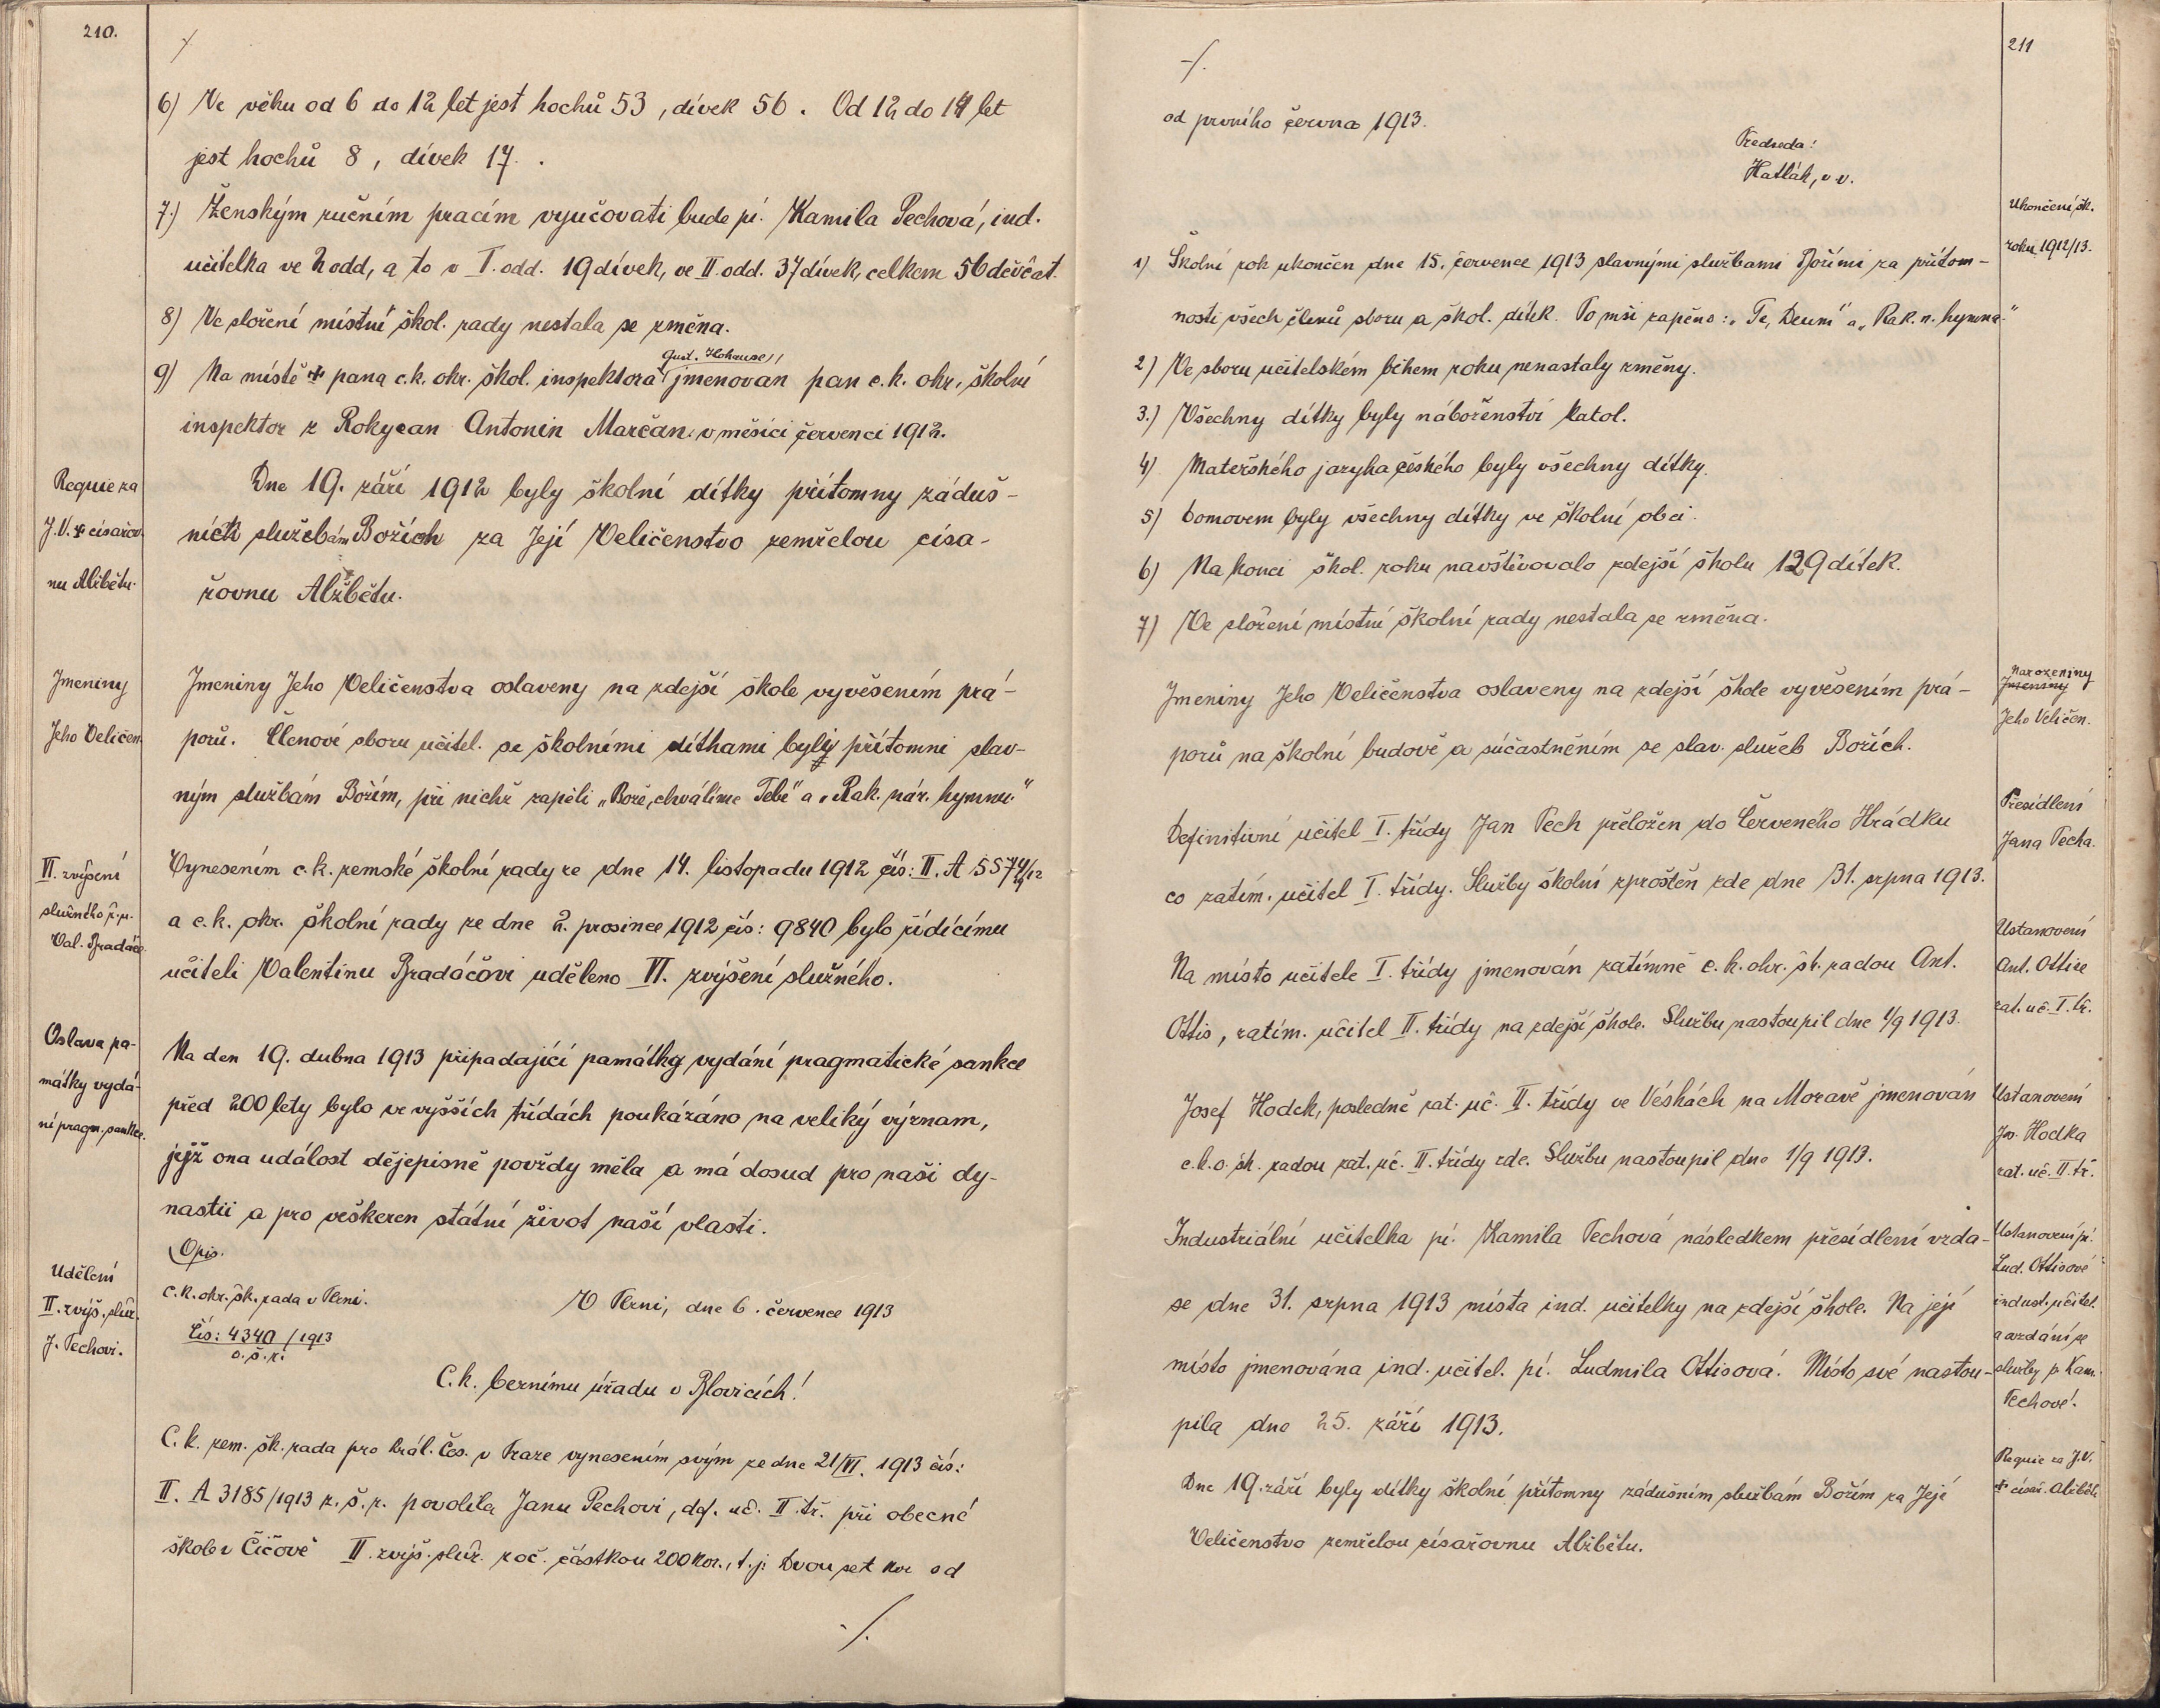 210.
6) Ve věku od 6 do 12 let jest hochů 53, dívek 56. Od 12 do 14 let
jest hochů 8, dívek 17.
7.) Ženským ručním pracím vyučovati bude pí. Kamila Pechová, ind.
učitelka ve 2 odd, a to v I. odd. 19 dívek, ve II. odd. 37 dívek, celkem 56 děvčat.
8) Ve složení místní škol. rady nestala se změna.
9) Na místě † pana c.k. okr. škol. inspektora Gust. Hohause jmenován pan c.k. okr. školní
inspektor z Rokycan Antonin Marčan v měsíci červenci 1912.
Requie za
J.V. † císařov
nu Alžbětu.
Dne 19. září 1912 byly školní dítky přítomny záduš-
ních službám Božích za Její Veličenstvo zemřelou císa-
řovnu Alžbětu.
Jmeniny
Jeho Veličen.
Jmeniny Jeho Veličenstva oslaveny na zdejší škole vyvěšením prá-
porů. Členové sboru učitel. se školními dítkami byli přítomni slav-
ným službám Božím, při nichž zapěli „Bože, chválíme Tebe" a „Rak. nár. hymnu."
VI. zvýšení
služného ř. u.
Val. Bradáče.
Vynesením c.k. zemské školní rady ze dne 14. listopadu 1912 čís: II. A 5574/12
a c.k. okr. školní rady ze dne 2. prosince 1912 čís: 9840 bylo řídícímu
učiteli Valentinu Bradáčovi uděleno VI. zvýšení služného.
Oslava pa-
mátky vydá-
ní pragm. sankce.
Na den 19. dubna 1913 připadající památky vydání pragmatické sankce
před 200 lety bylo ve vyšších třídách poukázáno na veliký význam,
jejž ona událost dějepisně povždy měla a má dosud pro naši dy-
nastii a pro veškeren státní život naší vlasti.
Udělení
II. zvýš. služ.
J. Pechovi.
Opis.
C.k. okr. šk. rada v Plzni.
V Plzni, dne 6. července 1913
Čís: 4340/1913
o.š.r.
C.k. bernímu úřadu v Blovicích!
C.k. zem. šk. rada pro král. Čes. v Praze vynesením svým ze dne 21/VI. 1913 čís:
II. A 3185/1913 z.š.r. povolila Janu Pechovi, def. uč. II. tř. při obecné
škole v Čičově II. zvýš. služ. roč. částkou 200 kor., t.j. Dvou set kor od
./.
211
./.
od prvního června 1913.
Předseda:
Hatlák, v.v.
Ukončení šk.
roku 1912/13.
1) Školní rok ukončen dne 15. července 1913 slavnými službami Božími za přítom-
nosti všech členů sboru a škol. dítek. Po mši zapěno: „Te, Deum" a „Rak. n. hymna."
2) Ve sboru učitelském během roku nenastaly změny.
3.) Všechny dítky byly náboženství katol.
4) Mateřského jazyka českého byly všechny dítky.
5) Domovem byly všechny dítky ve školní obci.
6) Na konci škol. roku navštěvovalo zdejší školu 129 dítek.
7) Ve složení místní školní rady nestala se změna.
Narozeniny
Jmeniny
Jeho Veličen.
Jmeniny Jeho Veličenstva oslaveny na zdejší škole vyvěšením prá-
porů na školní budově a súčastněním se slav. služeb Božích.
Přesídlení
Jana Pecha.
Definitivní učitel I. třídy Jan Pech přeložen do Červeného Hrádku
co zatím. učitel I. třídy. Služby školní zproštěn zde dne 31. srpna 1913.
Ustanovení
Ant. Ottise
zat. uč. I. tř.
Na místo učitele I. třídy jmenován zatímně c.k. okr. šk. radou Ant.
Ottis, zatím. učitel II. třídy na zdejší škole. Službu nastoupil dne 1/9 1913.
Ustanovení
Jos. Hodka
zat. uč. II. tř.
Josef Hodek, posledně zat. uč. II. třídy ve Véskách na Moravě jmenován
c.k.o. šk. radou zat. uč. II. třídy zde. Službu nastoupil dne 1/9 1913.
Ustanovení pí.
Lud. Ottisové
indust. učitel.
a vzdání se
služby p. Kam.
Pechové.
Industriální učitelka pí. Kamila Pechová následkem přesídlení vzda-
se dne 31. srpna 1913 místa ind. učitelky na zdejší škole. Na její
místo jmenována ind. učitel. pí. Ludmila Ottisová. Místo své nastou-
pila dne 25. září 1913.
Requie za J.V.
† císař. Alžbětu
Dne 19. září byly dítky školní přítomny zádušním službám Božím za Její
Veličenstvo zemřelou císařovnu Alžbětu.